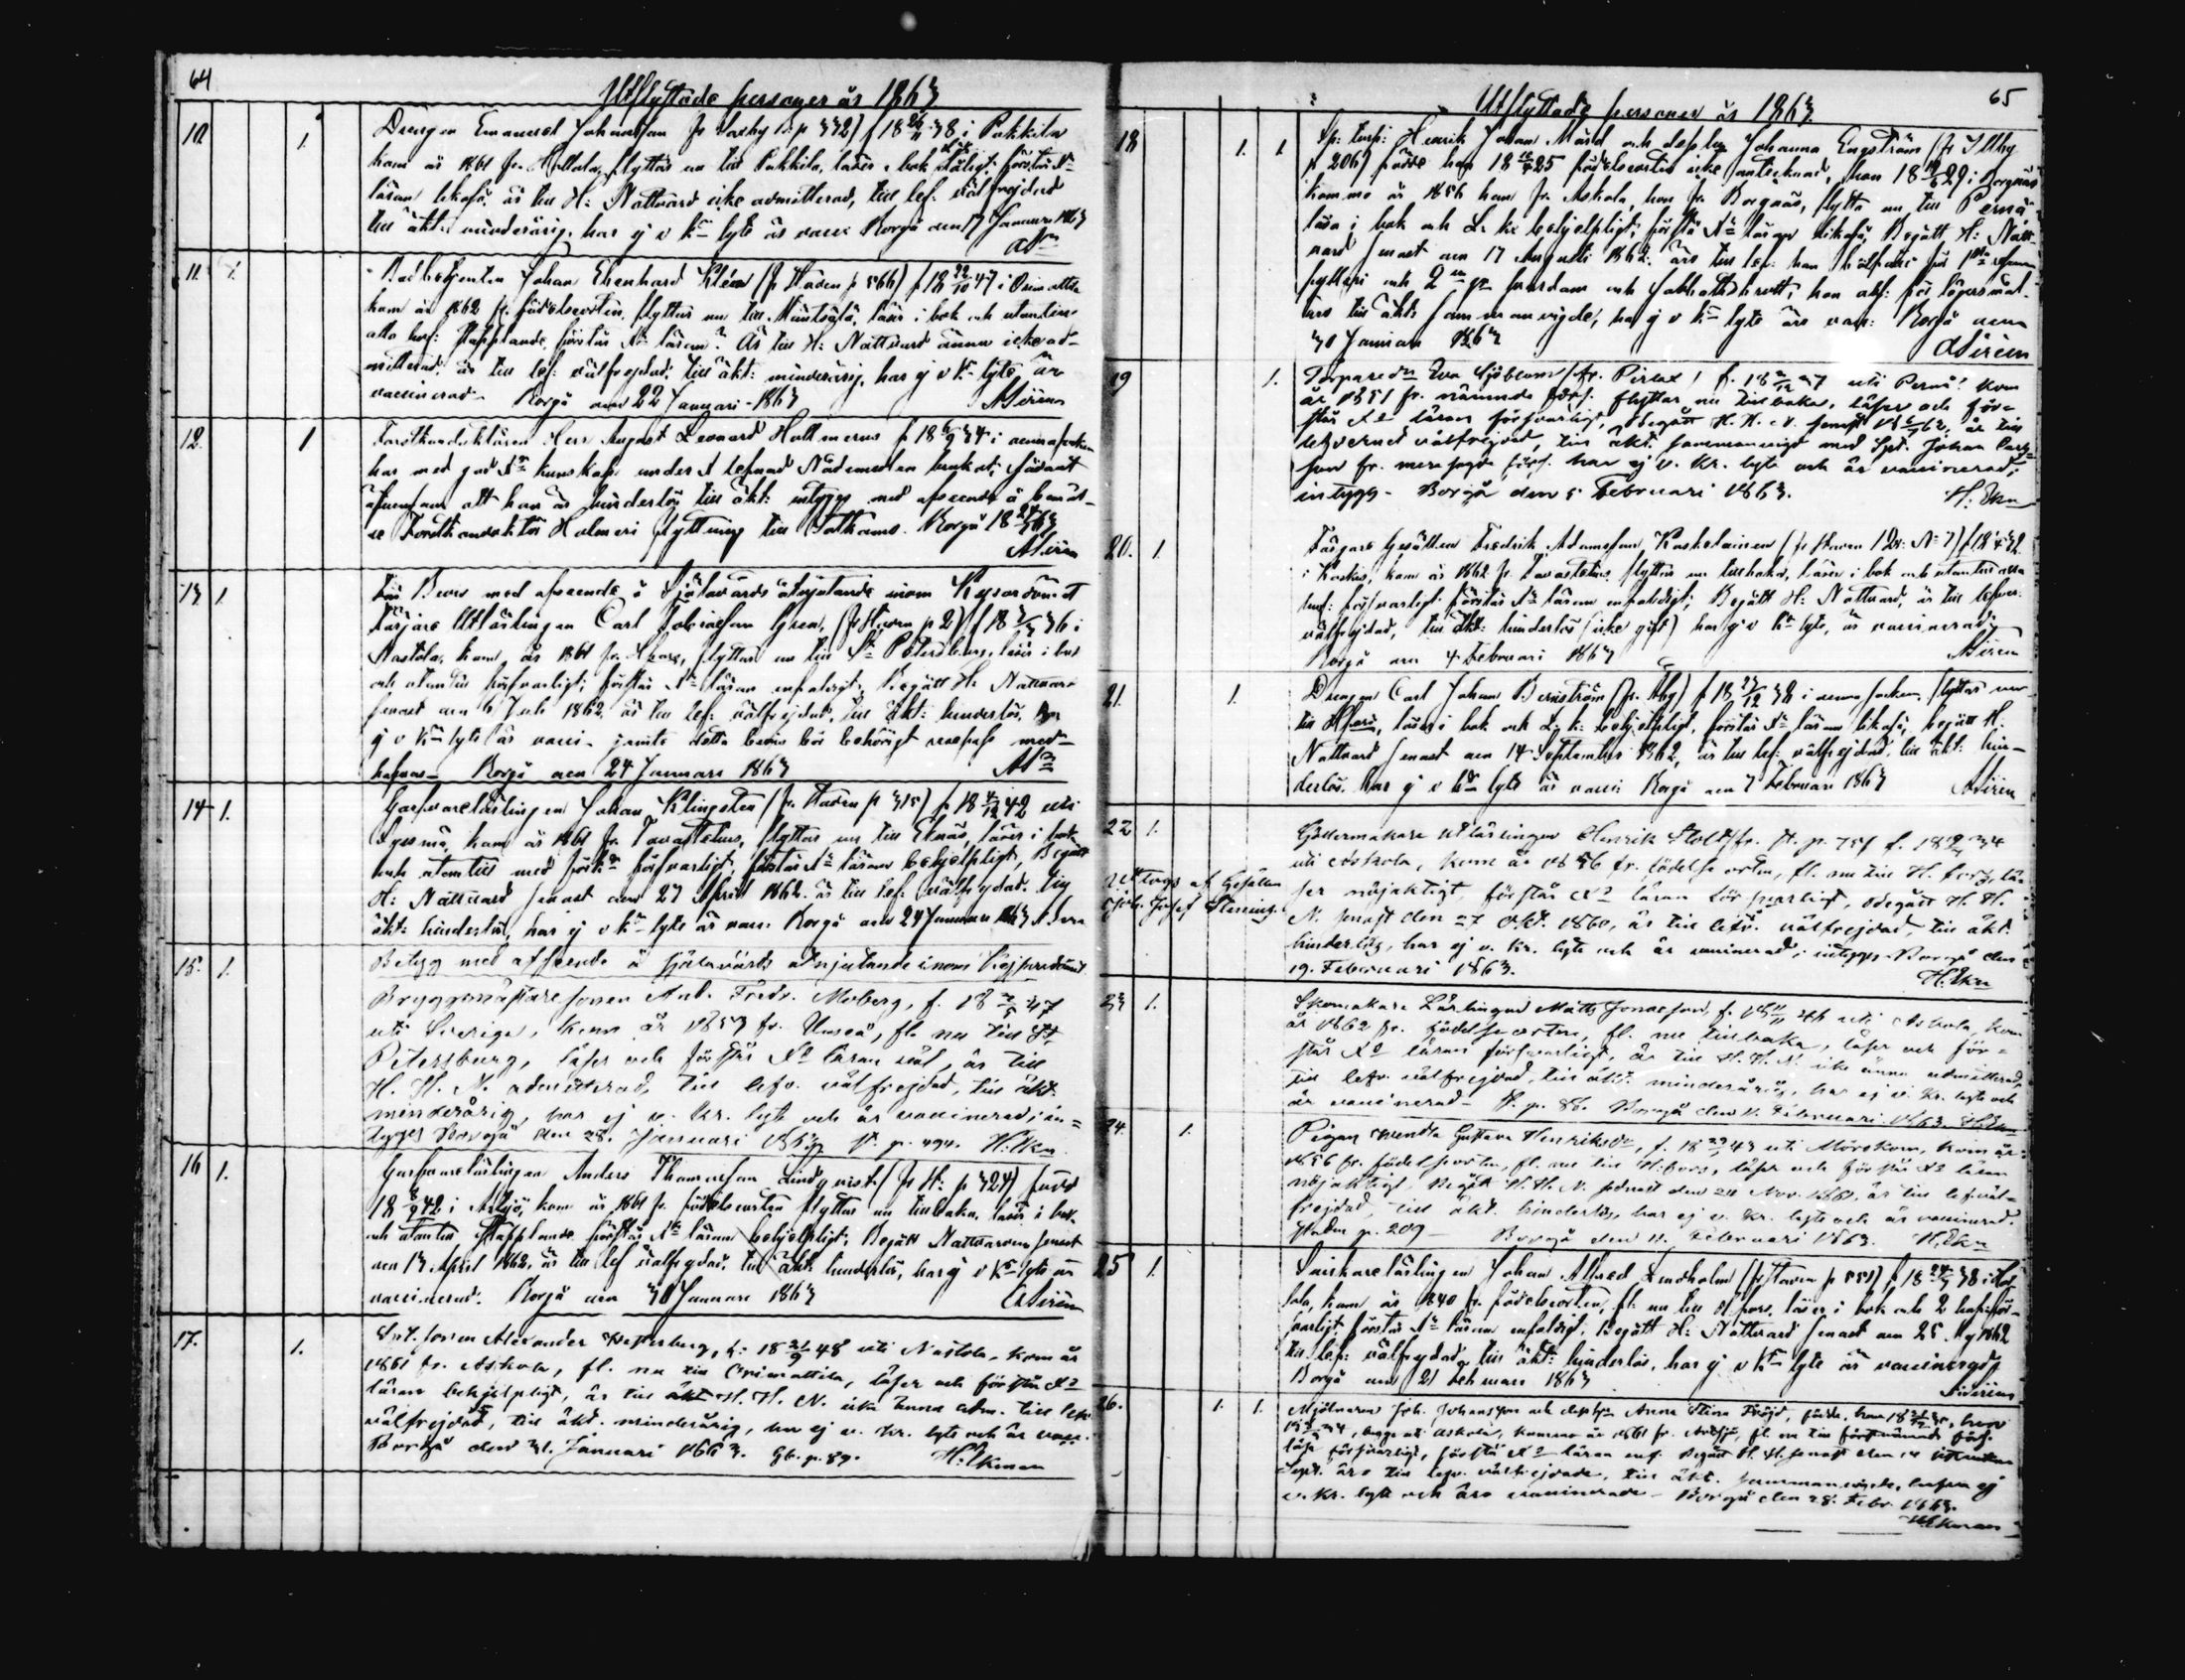 64
Utflyttade personer år 1863
10. 1. Drengen Emanuel Johansson fr p 332) f 18 26/11 38 i Pukkila
kom år 1861 fr. flyttar nu till Pukkila, läser i bok förstår Xs
läran likaså, är till H: Nattvard icke admitterad, till lef: välfrejdad
till äkt: minderårig, har ej v kr lyte är vacci Borgå den 17 Januari 1863
11. 1. Johan Ehrenhard Klén (fr Staden p 566) f 18 22/10 47 i Orimattila
kom år 1862 fr. födelseorten, flyttar nu till Mäntsälä, läser i bok och utantill
alla stapplande, förstår Xs läran? Är till H: Nattvard ännu icke ad-
mitterad, är till lef: välfrejdad, till äkt: minderårig, har ej v kr lyte är
vaccinerad. Borgå den 22 Januari 1863 ASirén
12. 1 Forstkonduktören Herr August Leonard Holmerus f 18 6/9 34 i denna socken
har med god Xs kunskap under lefnad Nådemedlen brukat; sådant
äfvensom att han är hinderlös till äkt: intygas med afseende å benäm-
de Forstkonduktör Holmeri flyttning till Borgå 18 24/1 63
ASirén
13. 1 Till Bevis med afseende å Själavårds åtnjutande inom Kejsardömet
Färgare Utlärlingen Carl Tobiasson Gren, (fr Staden p 2) f 18 36 i
Nastola, kom år 1861 fr. flyttar nu till St Petersburg, läser i bok
och utantill försvarligt; förstår Xs läran enfaldigt; Begått H: Nattvard
senast den 6 Juli 1862, är till lef: välfrejdad, till äkt: hinderlös, har
ej v kr lyte är vacci. jemte detta bevis bör behörigt respass med-
hafvas. Borgå den 24 Januari 1863
14. 1. Garfvarelärlingen Johan Klingsten (fr. Staden p 315) f 18 4/12 42 uti
Sysmä, kom år 1861 fr. Tavastehus, flyttar nu till Ekenäs, läser i bok
och utantill med försvarligt, förstår Xs läran behjelpligt, Begått
H: Nattvard senast den 27 April 1862. är till lef: välfrejdad. till
äkt: hinderlös, har ej v kr lyte är vacci Borgå den 24 Januari 1863 ASirén
15. 1. Betyg med afseende å själavårds åtnjutande inom Kejsaredömet
Bryggmästaresonen Ant. Fredr. Moberg, f. 18 47
uti Sverige, kom år 1857 fr. fl. nu till St.
Petersburg, läser och förstår Xs läran väl, är till
H. H. N. admitterad, till lefv. välfrejdad, till äkt.
minderårig, har ej v. kr. lyte och är vaccinerad; in=
tygas Borgå den 28. Januari 1863. St. p. 494. H:Ekn
16 1. Garfvarelärlingen Anders Thomasson Lindqvist (fr St: p 324) född
18 8/9 42 i Artsjö, kom år 1861 fr. födelseorten flyttar nu tillbaka, läser i bok
och utantill stapplande, förstår Xs läran behjelpligt; Begått Nattvarden senast
den 13 April 1862, är till lef välfrejdad, till äkt: hinderlös, har ej v kr lyte är
vaccinerad. Borgå den 30 Januari 1863 ASirén
17. 1. Sold. sonen Alexander Westerberg, f. 18 21/9 48 uti Nastola, kom år
1861 fr. Askola, fl. nu till Orimattila, läser och förstår Xs
läran behjelpligt, är till H. H. N. icke ännu adm. till lefv
välfrejdad, till äkt. minderårig, har ej v. kr. lyte och är vacc.
Borgå den 31. Januari 1863. Gb. p. 89. H:Ekman
65
Utflyttade personer år 1863.
18 1. 1 Sp: torp: Henrik Johan Mård och dess hu Johanna Engström (fr Illby
p 206) födde han 18 25 födelseorten icke antecknad, hon 18 29 i Borgnäs
kommo år 1856 han fr. Askola, hon fr. Borgnäs, flytta nu till Pernå
läsa i bok och L. kc behjelpligt; förstå Xs läran likaså, Begått H: Natt-
vard senast den 17 Augusti 1862; äro till lef: han för 1sta resan
fylleri och 2dra gn svordom och sabbathsbrott; hon abs: för lägersmål.
äro till äkt: sammanvigde, ha ej v kr lyte äro vacc: Borgå den
30 Januari 1863 ASirén
19 1. Torpare dn Eva Sjöblom (fr. Pirlax) f. 18 37 uti Pernå! kom
år 1851 fr. nämnde förs. flyttar nu tillbaka, läser och för-
står Xs läran försvarligt, begått H. H. N. senast 18 62, är till
lefvernet välfrejdad, till äkt. sammanvigd med Spt. Johan Carls-
son fr. mersagde förs. har ej v. kr. lyte och är vaccinerad;
intygas. Borgå den 5 Februari 1863. H:Ekn
20. 1. Färgare Gesällen Fredrik Adamsson Koskelainen (fr Staden 1 Qv: No 7) f 18 32
i kom år 1862 fr. Tavastehus, flyttar nu tillbaka, läser i bok och utantill alla
huf: försvarligt förstår Xs läran enfaldigt; Begått H: Nattvard, är till lefver:
välfrejdad, till äkt: hinderlös (icke gift) har ej v kr lyte, är vaccinerad;
Borgå den 4 Februari 1863 ASirén
21. 1. Drengen Carl Johan Bernström (fr. Åby) f 18 27/12 38 i denna socken, flyttar nu
till H:fors, läser i bok och L: k: behjelpligt, förstår Xs läran likaså, begått H.
Nattvard senast den 14 September 1862, är till lef: välfrejdad, till äkt: hin-
derlös. har ej v kr lyte är vacci Borgå den 7 Februari 1863 ASirén
22 1. Gördelmakare utlärlingen Henrik Stolt fr. St. p. 757 f. 18 34
uti Askola, kom år 1856 fr. födelseorten, fl. nu till H. fors, lä-
ser nöjaktigt, förstår Xs läran försvarligt, begått H. H.
N. senast den 27 Okt. 1860, är till lefv. välfrejdad, till äkt.
hinderlös, har ej v. kr. lyte och är vaccinerad; intygas Borgå den
19. Februari 1863. H:Ekn
Uttogs af Gesällen
Josef Flenning
23 1. Skomakare Lärlingen Matts Jonasson, f. 18 11/11 46 uti Askola, kom
år 1862 fr. födelseorten, fl. nu tillbaka, läser och för=
står Xs läran försvarligt, är till H. H. N. icke ännu admitterad,
till lefv. välfrejdad, till äkt. minderårig, har ej v. kr. lyte och
är vaccinerad. St. p. 86. Borgå den 11. Februari 1863. H:Ekn
24. 1. Pigan Wendla Gustava Henriksdr, f. 18 43 uti Mörskom, kom år
1856 fr. födelseorten, fl. nu till H:fors, läser och förstår Xs läran
nöjaktigt, begått H. H. N. senast den Nov. 1862, är till lef. väl-
frejdad, till äkt. hinderlös, har ej v. kr. lyte och är vaccinerad.
Staden p. 209 Borgå den 11. Februari 1863. H:Ekn
25 1. Snickarelärlingen Johan Alfred Lindholm (fr Staden p 551) f 18 24/5 38 i Hol
lola, kom år 1840 fr. födelseorten, fl: nu till H:fors, läser i bok och 2 huf: för-
svarligt, förstår Xs läran enfaldigt, Begått H: Nattvard senast den 25 1862
till lef: välfrejdad, till äkt: hinderlös, har ej v kr lyte är vaccinerad
Borgå den 21 Februari 1863 ASirén
26. 1. 1. Mjölnaren Joh. Johansson och dess hu Anna Stina Fröjd, födde, han 18 hon
18 34, begge uti Askola, kommo år 1861 fr. Artsjö, fl. nu till förs.
läsa försvarligt, förstå Xs läran enf. begått H. H. senast den
Sept. äro till lefv. välfrejdade, till äkt. sammanvigde, hafva ej
v. kr. lyte och äro vaccinerade. Borgå den 28. Febr. 1863.
H:Ekman